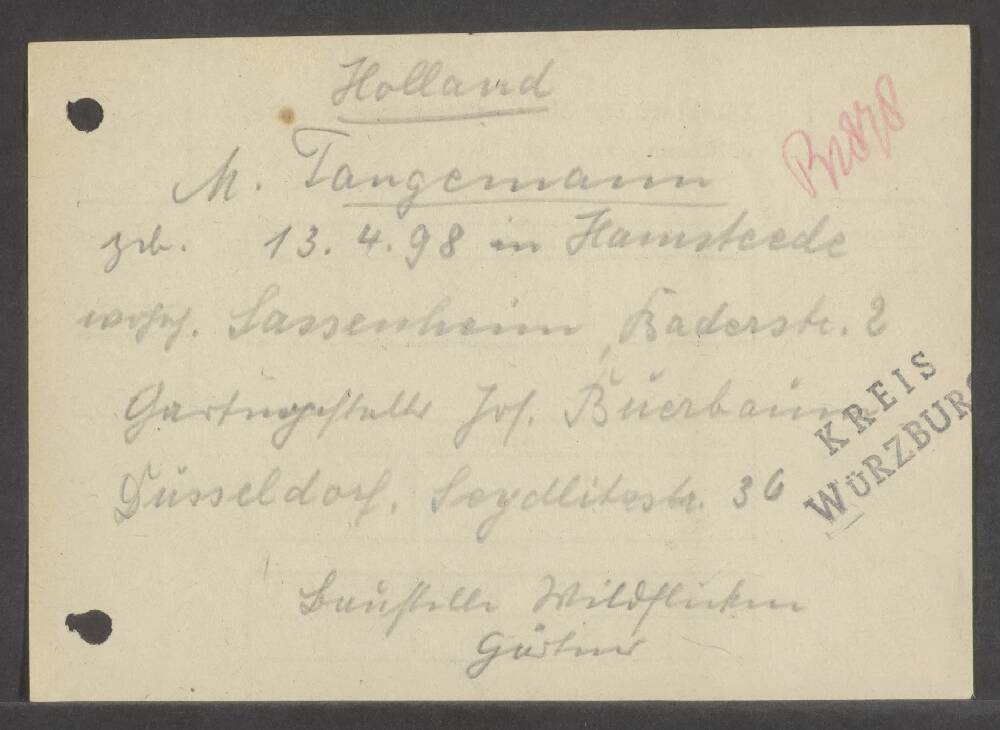 Holland
M. Tangemann
geb. 13.4.98 in Hamsteede
wohnh. Sassenheim, Baderstr. 2
Gartengestalter Jos. Buerbaum
Düsseldorf, Seydlitzstr. 36
Baustelle Wildflecken
Gärtner
KREIS
WÜRZBURG